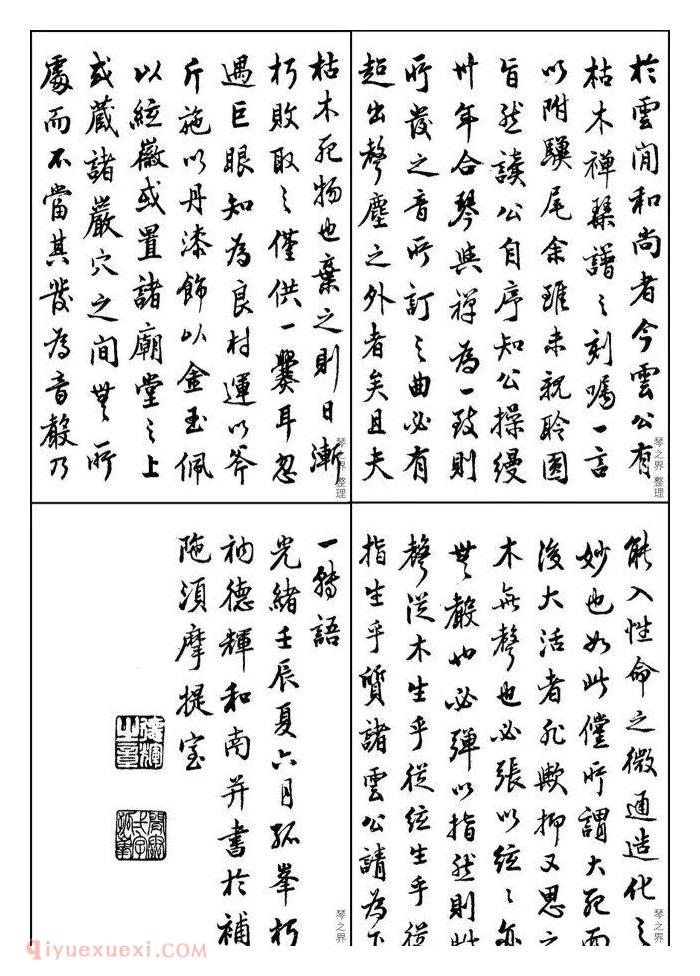 於雲閒和尚者今雲公有
枯木禪琴譜之刻囑一言
以附驥尾余雖未親聆圓
旨然讀公自序知公操縵
卅年合琴與禪為一致則
所發之音所訂之曲必有
超出聲塵之外者矣且夫
琴之界 整理
枯木死物也棄之則日漸
朽敗取之僅供一爨耳忽
遇巨眼知為良材運以斧
斤施以丹漆飾以金玉佩
以絃徽或置諸廟堂之上
或藏諸巖穴之間無所
處而不當其發為音聲乃
琴之界 整理
能入性命之微通造化之
妙也如此儻所謂大死而
後大活者非歟抑又思之
木無聲也必張以絃絃亦
無聲也必彈以指然則此
聲從木生乎從絃生乎從
指生乎質諸雲公請為下
琴之界
一轉語
光緒壬辰夏六月孤峯朽
衲德輝和南并書於補
陁須摩提室
德輝之章
琴之界
qiyuexuexi.com